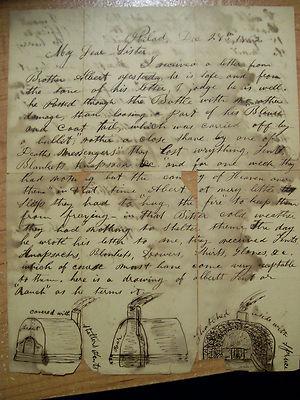 Philad, Dec 28th 1862
My Dear Sister
I received a letter from
Brother Albert yesterday, he is safe and from
the tone of his letter I judge he is well.
he passed through the Battle with no other
damage, than loosing a part of his
and Coat tail, which was carried off by
a bullet; rather a close shave by one of
Deaths Messengers. they lost everything, Tents
Blankets Knapsacks and for one week they
had nothing but the canopy of Heaven over
them in that time Albert
they had to hug the fire to keep them
from freezing in that Bitter cold weather
they had nothing to shelter them. the day
he wrote his letter to me they received Tents
Knapsacks, Blankets, Drawers, Shirts, Gloves &c.
which of course must have come very acceptable
to them. here is a drawing of Alberts Tent or
Ranch" as he terms it.
covered with
Shelter Tents
door
thatched side with
Spruce